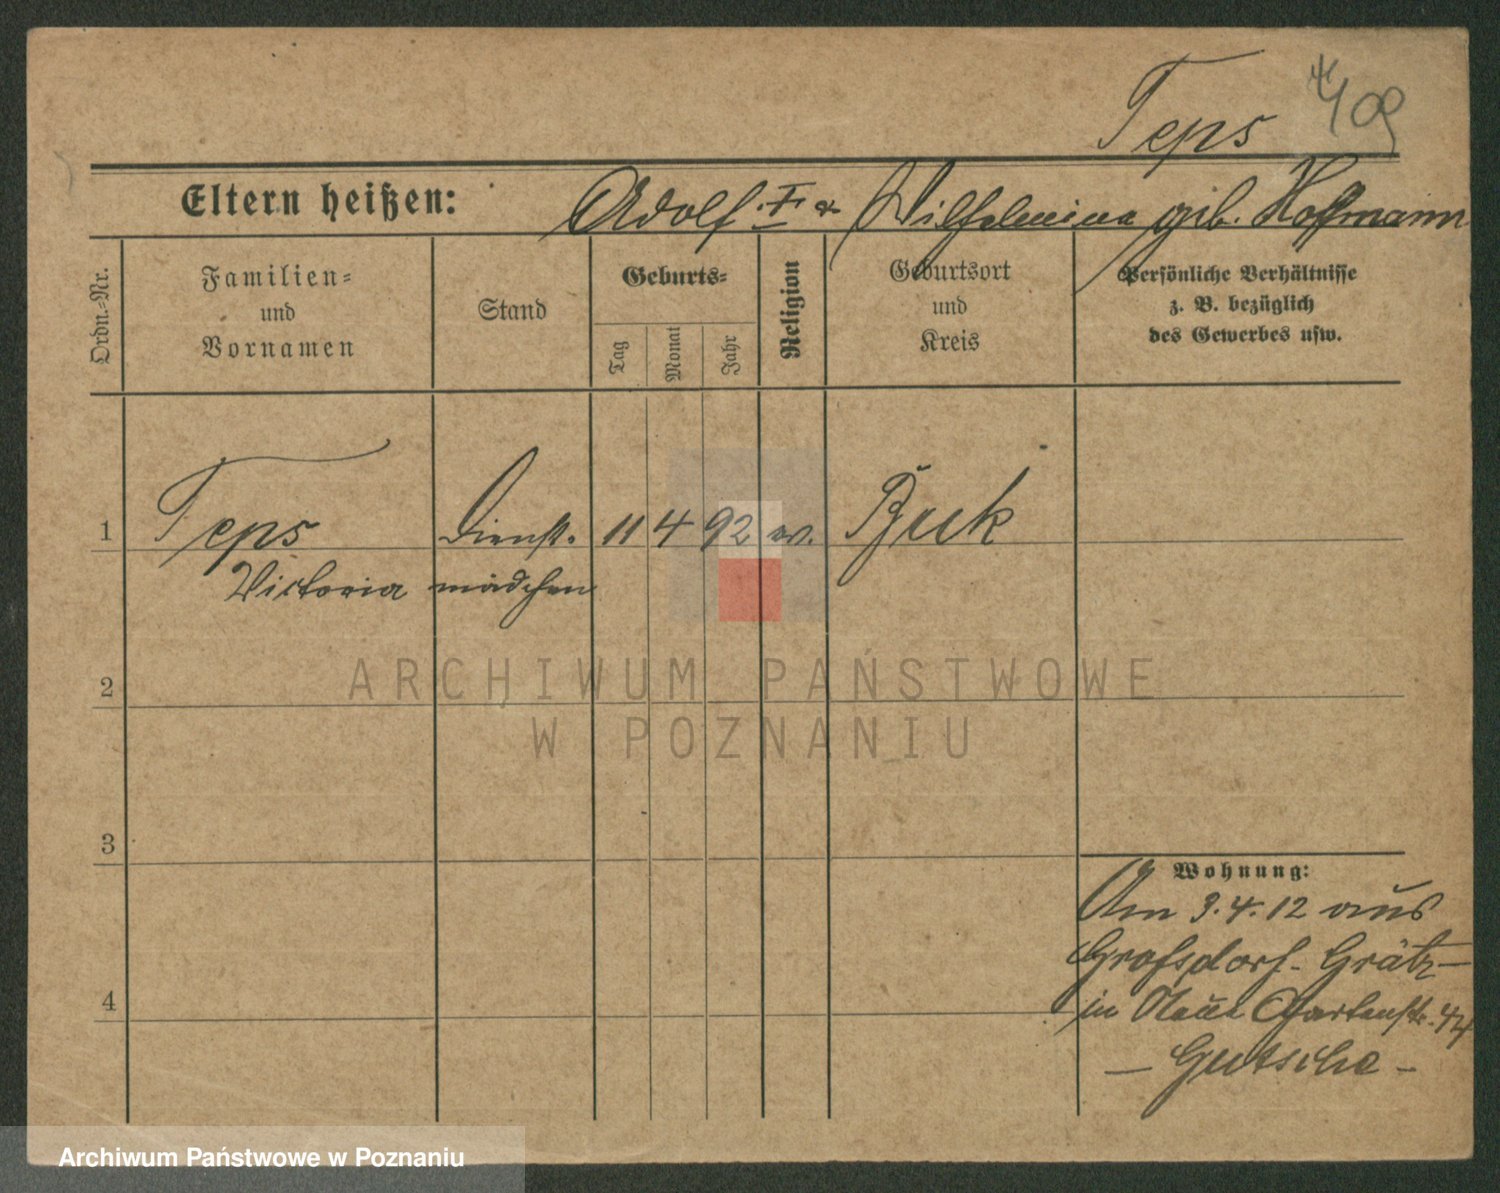 Teps
Eltern heißen: Adolf & Wilhelmine geb. Hofmann
Ordn.-Nr.
Familien-
und
Vornamen
Stand
Geburts-
Tag
Monat
Jahr
Religion
Geburtsort
und
Kreis
Persönliche Verhältnisse
z. B. bezüglich
des Gewerbes usw.
1 Teps Dienst- 11 4 92 ev. Buk
Victoria mädchen
2
3
4
Wohnung:
Am 3.4.12 aus
Grofsdorf-Grätz-
in Neue Gartenstr. 44
- Gutsche -
ARCHIWUM PAŃSTWOWE
W POZNANIU
Archiwum Państwowe w Poznaniu